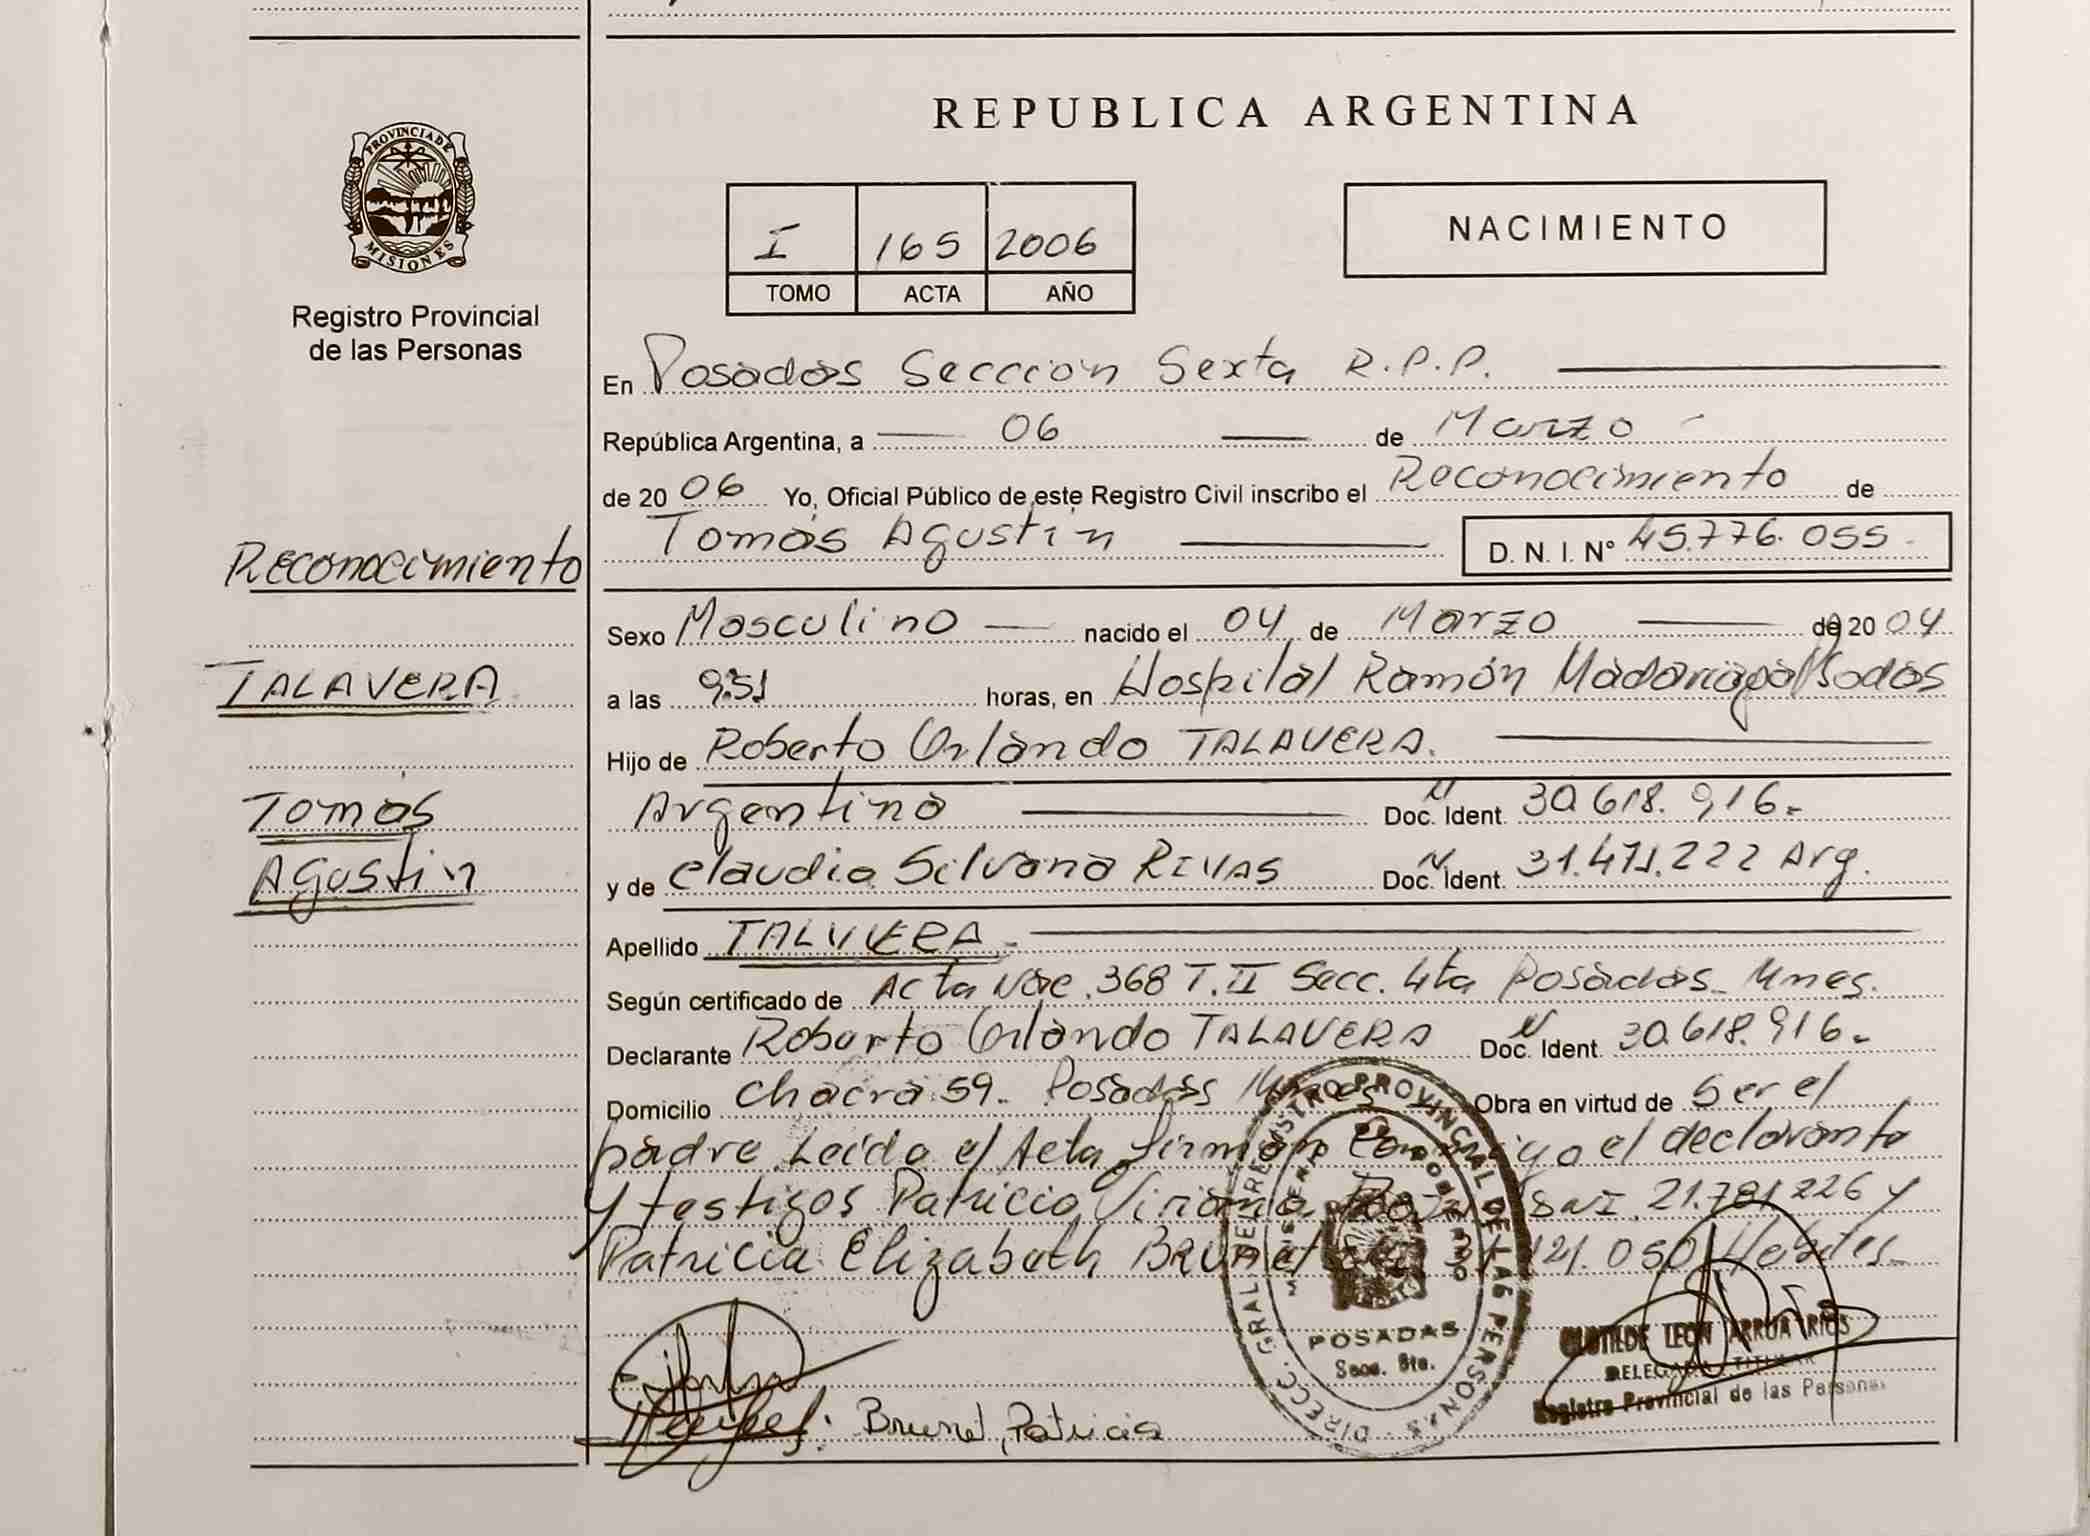 PROVINCIA DE
MISIONES
Registro Provincial
de las Personas
Reconocimiento
TALAVERA
Tomás
Agustín
REPUBLICA ARGENTINA
I 165 2006
TOMO ACTA AÑO
NACIMIENTO
En Posadas Sección Sexta R.P.P.
República Argentina, a 06 de Marzo
de 2006 Yo, Oficial Público de este Registro Civil inscribo el Reconocimiento de
Tomás Agustín D. N. I. N° 45.776.055
Sexo Masculino nacido el 04 de Marzo de 2004
a las 9:51 horas, en Hospital Ramón Madariaga Posadas
Hijo de Roberto Orlando TALAVERA.
Argentino Doc. Ident. 30.618.916
y de Claudia Silvana RIVAS Doc. Ident. 31.471.222 Arg.
Apellido TALAVERA
Según certificado de Acta Nac. 368 T. II Secc. 4ta Posadas Mnes.
Declarante Roberto Orlando TALAVERA Doc. Ident. 30.618.916
Domicilio Chacra 59. Posadas Obra en virtud de Ser el
padre. Leída el Acta firman el declarante
y testigos Patricia 21.781.226 y
Patricia Elizabeth 121.050
DIRECC. GRAL DE REGISTRO PROVINCIAL DE LAS PERSONAS
POSADAS
Secc. 6ta.
CLOTILDE LEON ARRUA RIOS
DELEGADA TITULAR
Registro Provincial de las Personas
Brunet, Patricia